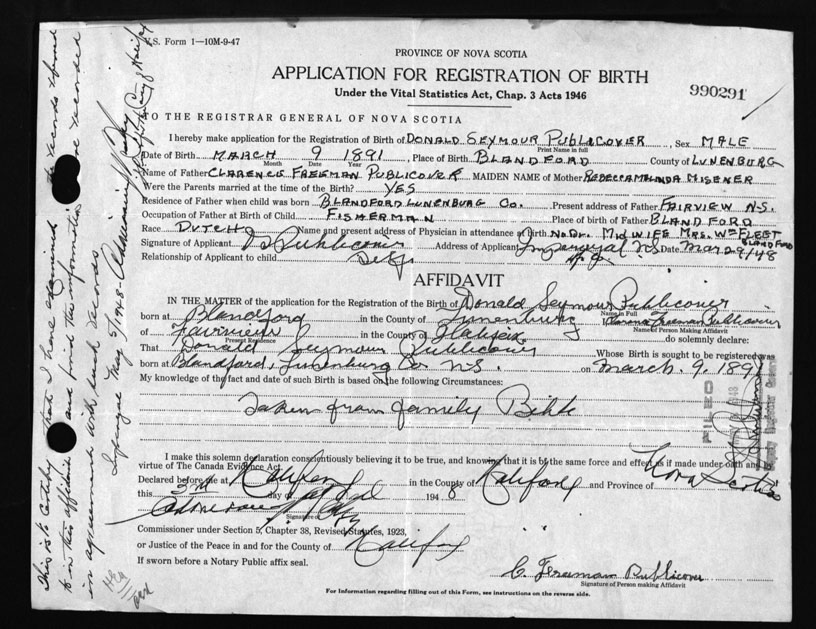 U.S. Form 1—10M-9-47
PROVINCE OF NOVA SCOTIA
APPLICATION FOR REGISTRATION OF BIRTH
Under the Vital Statistics Act, Chap. 3 Acts 1946
990291
TO THE REGISTRAR GENERAL OF NOVA SCOTIA
I hereby make application for the Registration of Birth of DONALD SEYMOUR PUBLICOVER, Sex MALE
Print Name in full
Date of Birth MARCH 9 1891, Place of Birth BLANDFORD County of LUNENBURG
Month Day Year
Name of Father CLARENCE FREEMAN PUBLICOVER MAIDEN NAME of Mother REBECCA MALINDA MISENER
Were the Parents married at the time of the Birth? YES
Residence of Father when child was born BLANDFORD LUNENBURG Co. Present address of Father FAIRVIEW N.S.
Occupation of Father at Birth of Child FISHERMAN Place of birth of Father BLANDFORD
Race DUTCH Name and present address of Physician in attendance at birth No DR. MIDWIFE MRS. WM FLEET
BLANDFORD
Signature of Applicant D S Publicover Address of Applicant Imperoyal N.S. Date Mar 29/48
Relationship of Applicant to child Self
AFFIDAVIT
IN THE MATTER of the application for the Registration of the Birth of Donald Seymour Publicover
Name in Full
born at Blandford in the County of Lunenburg Clarence Freeman Publicover
Name of Person Making Affidavit
of Fairview in the County of Halifax do solemnly declare:
Present Residence
That Donald Seymour Publicover Whose Birth is sought to be registered was
born at Blandford, Lunenburg Co N.S. on March. 9, 1891
My knowledge of the fact and date of such Birth is based on the following Circumstances:
Taken from family Bible
FILED
I make this solemn declaration conscientiously believing it to be true, and knowing that it is of the same force and effect as if made under oath and by
virtue of The Canada Evidence Act.
Declared before me at Halifax in the County of Halifax and Province of Nova Scotia
this 3rd day of April 1948
Signature
Commissioner under Section 5, Chapter 38, Revised Statutes, 1923,
or Justice of the Peace in and for the County of Halifax
If sworn before a Notary Public affix seal.
C. Freeman Publicover
Signature of Person making Affidavit
For Information regarding filling out of this Form, see instructions on the reverse side.
This is to certify that I have examined the records
in this affidavit and find the information
in agreement with such records
Imperoyal May 5/1948